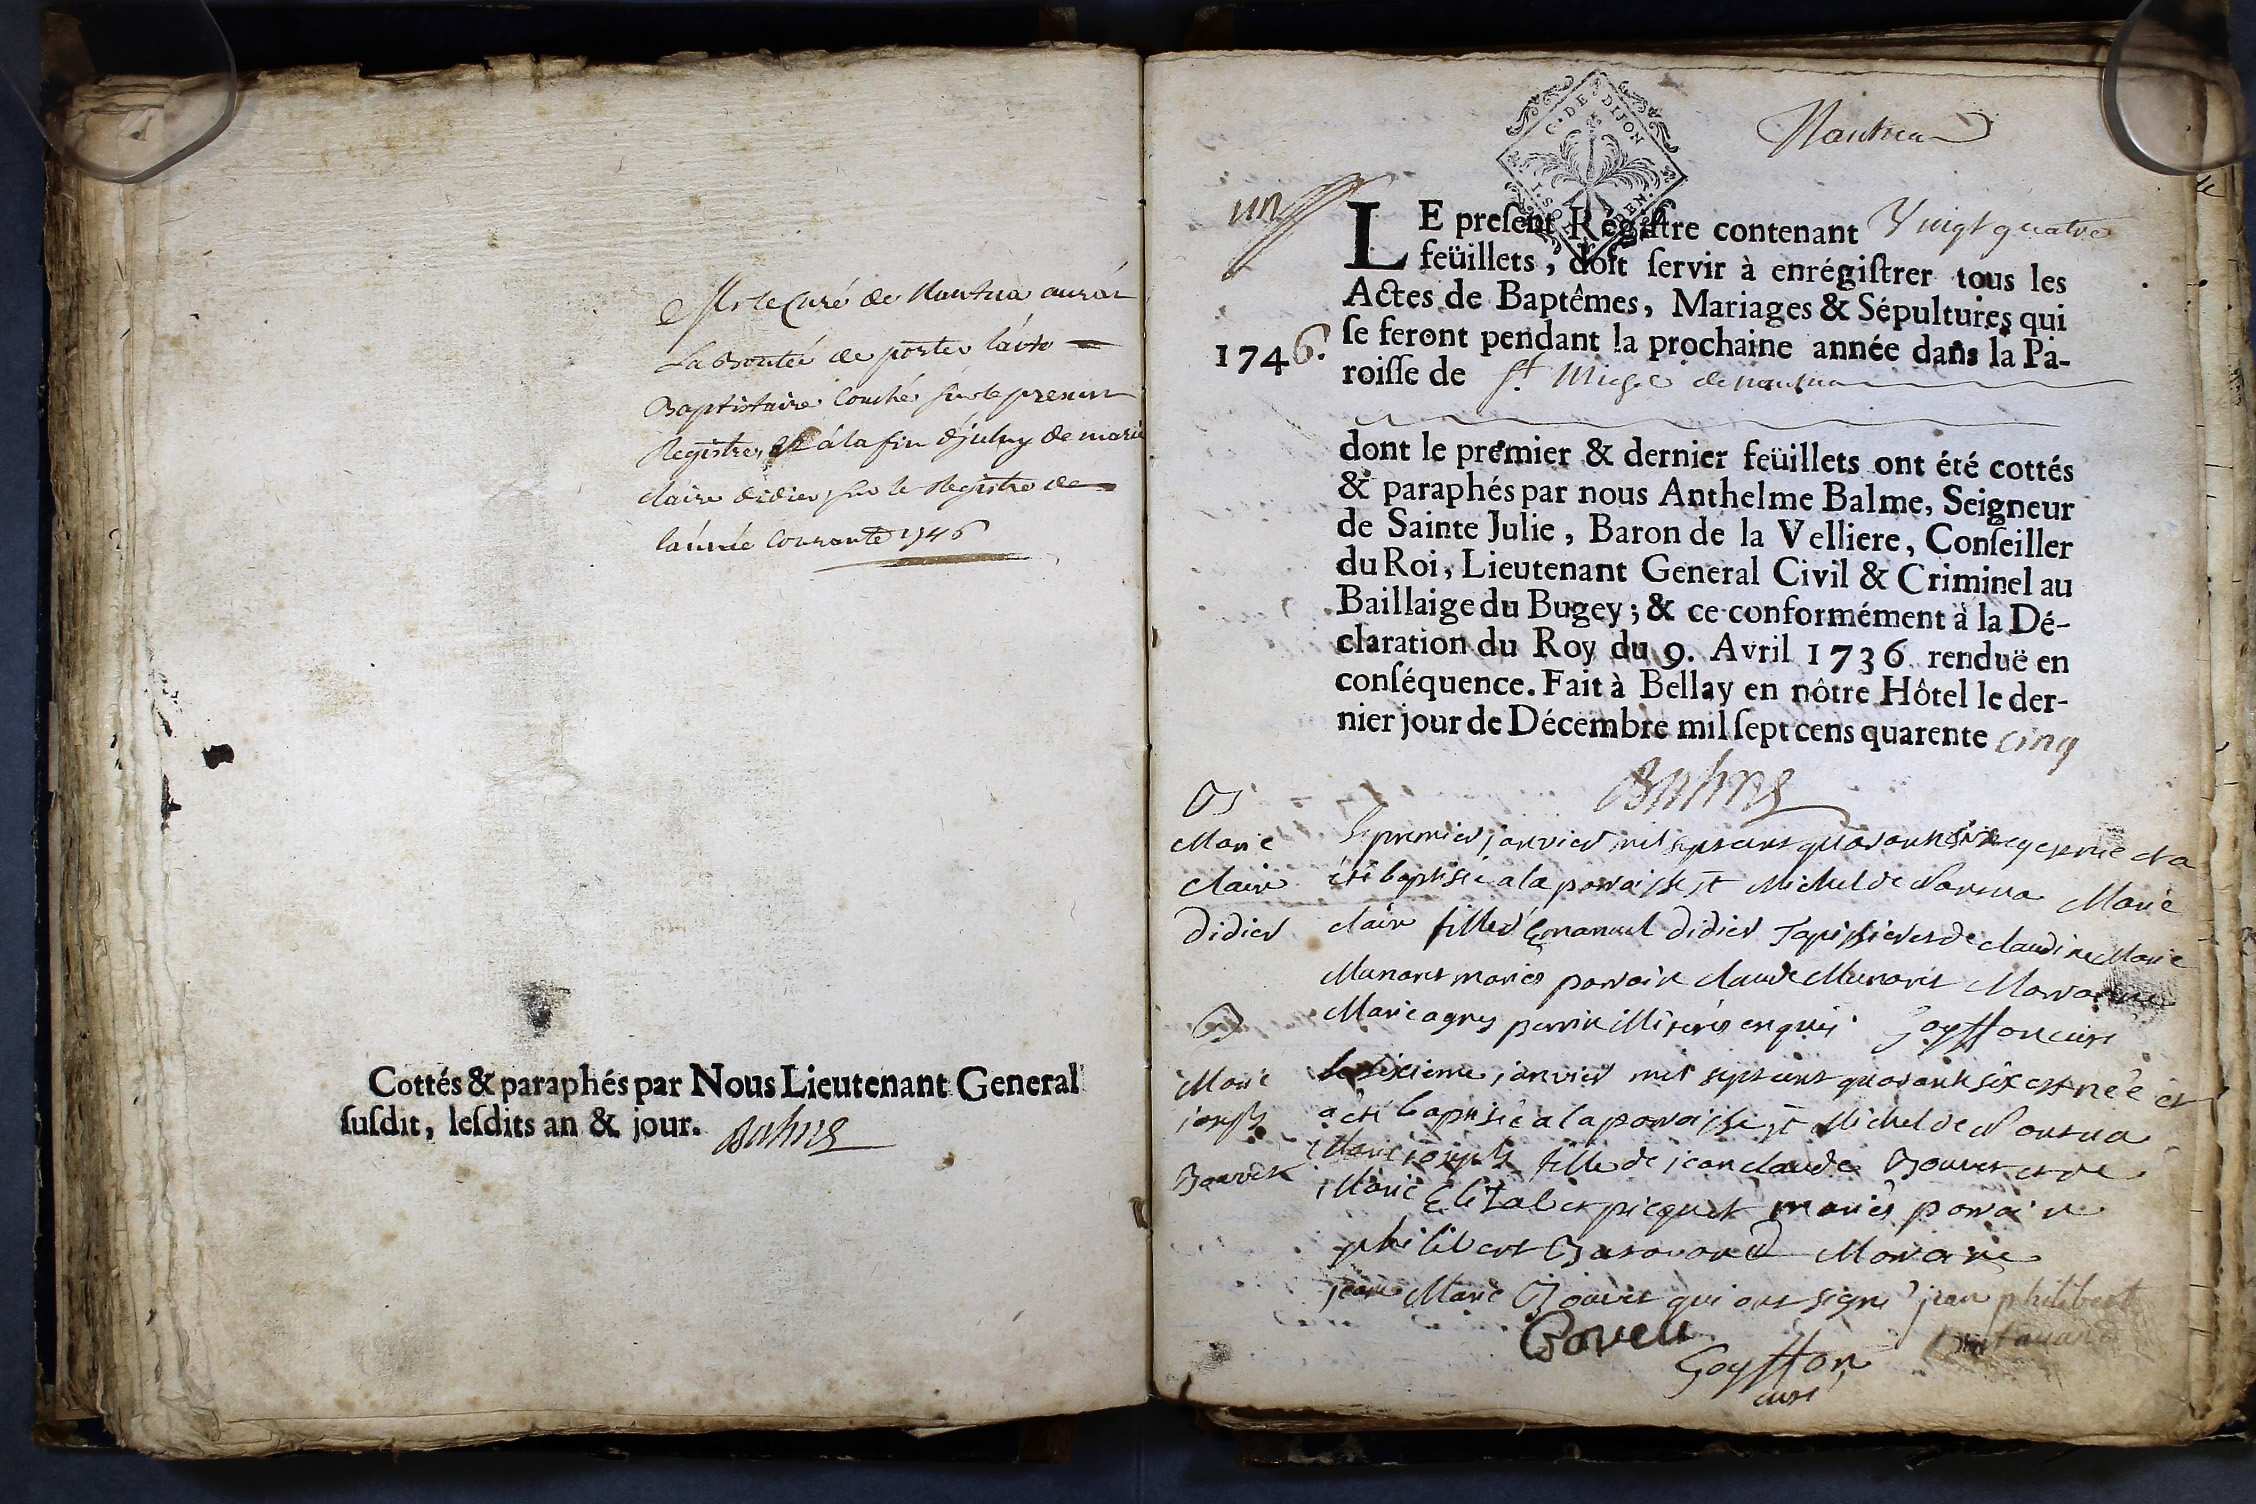 Mr le Curé de Nantua aurat
La Bonteé de porter lacte
Baptistaire Couché sur le present
Registre, à la fin de marie
claire didier, sur le Registre de
lannée Courante 1746
Cottés & paraphés par Nous Lieutenant General
ſuſdit, leſdits an & jour.
Balme
Nantua
C. DE DIJON
un
LE preſent Régiſtre contenant Vingt quatre
feüillets, doit ſervir à enrégiſtrer tous les
Actes de Baptêmes, Mariages & Sépultures qui
ſe feront pendant la prochaine année dans la Pa-
1746.
roiſſe de St Michel de nantua
dont le premier & dernier feüillets ont été cottés
& paraphés par nous Anthelme Balme, Seigneur
de Sainte Julie, Baron de la Velliere, Conſeiller
du Roi, Lieutenant General Civil & Criminel au
Baillaige du Bugey; & ce conformément à la Dé-
claration du Roy du 9. Avril 1736. renduë en
conſéquence. Fait à Bellay en nôtre Hôtel le der-
nier jour de Décembre mil ſept cens quarente cinq
Balme
B
Marie
claire
didier
Le premier janvier mil sept cent quarante six est née et a
été baptisée a la parroisse st Michel de Nantua Marie
claire fille d'Emanuel didier Tapissier et de claudine Marie
Munaret mariés parrain claude Munaret Marraine
Marie agnes perrin illiterés enquis Goyffon curé
B
Marie
joseph
Bouvet
le sixieme janvier mil sept cent quarante six est née et
a été baptisée a la parroisse st Michel de Nantua
Marie joseph fille de jean claude Bouvet et de
Marie Elizabet picquet mariés parrain
philibert Marraine
jeane Marie Bouvet qui ont signé jean philibert
Bouvet
Goyffon
curé